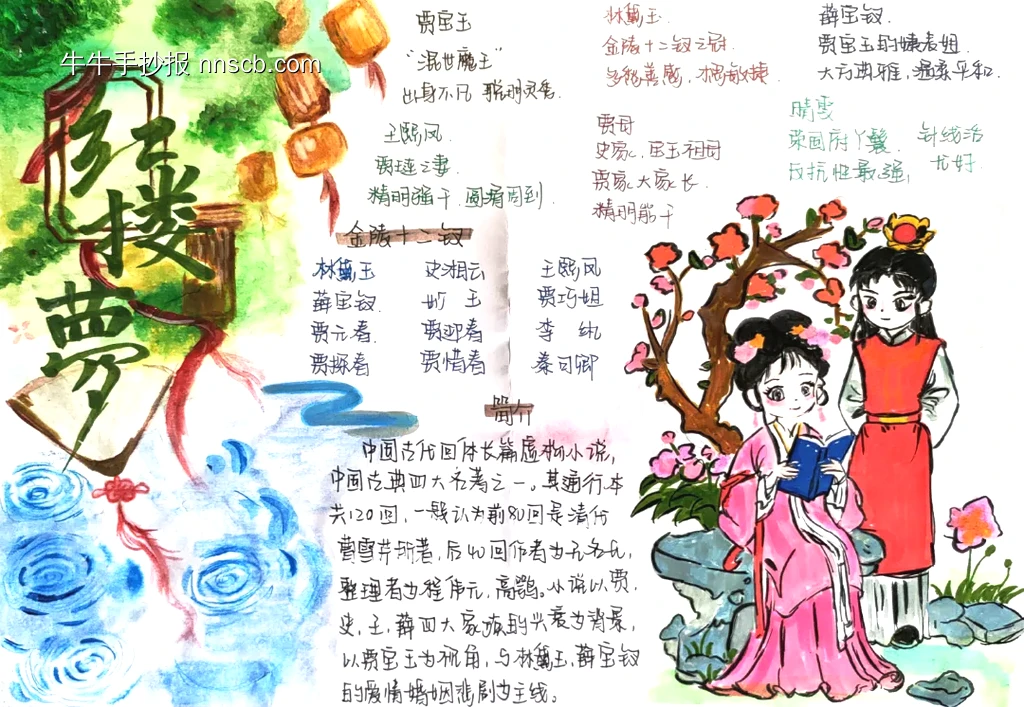 牛牛手抄报 nnscb.com
红楼梦
贾宝玉
“混世魔王”
出身不凡 聪明灵秀
王熙凤.
贾琏之妻.
精明强干，圆滑周到.
林黛玉.
金陵十二钗之冠.
多愁善感，机敏
贾母
史家，宝玉祖母
贾家大家长.
精明能干
薛宝钗.
贾宝玉的姨表姐.
大方典雅，温柔平和.
晴雯
荣国府丫鬟. 针线活
反抗性最强， 尤好.
金陵十二钗
林黛玉 史湘云 王熙凤
薛宝钗. 妙 玉 贾巧姐
贾元春 贾迎春 李 纨
贾探春 贾惜春 秦可卿
简介
中国古代回体长篇虚构小说，
中国古典四大名著之一。其通行本
共120回，一般认为前80回是清代
曹雪芹所著，后40回作者为无名氏，
整理者为程伟元，高鹗。小说以贾，
史，王，薛四大家族的兴衰为背景，
以贾宝玉为视角，与林黛玉，薛宝钗
的爱情婚姻悲剧为主线。